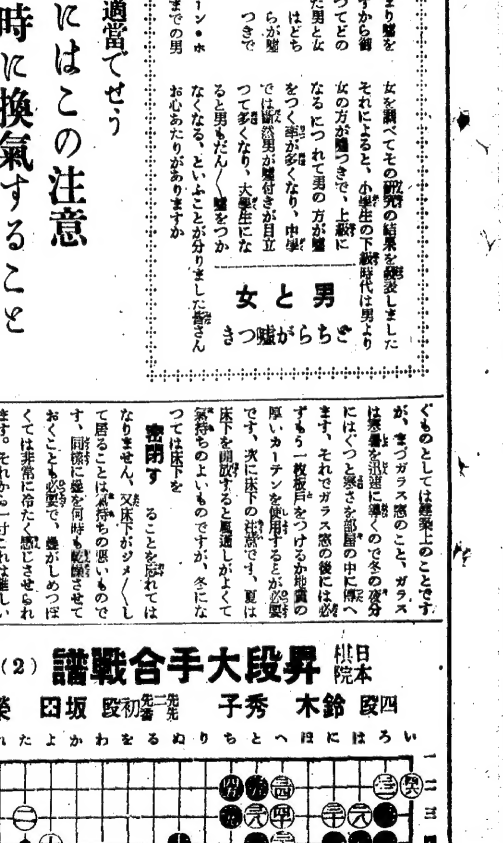 まり嘘を
すから御
つてどの
た男と女
はどち
らが嘘
つきで
ーン・ホ
までの男
女を調べてその研究の結果を發表しました
それによると、小學生の下級時代は男より
女の方が嘘つきで、上級に
なるにつれて男の方が嘘
をつく率が多くなり、中學
では斷然男が嘘付きが目立
つて多くなり、大學生にな
ると男もだん〱嘘をつか
なくなる、といふことが分りました皆さん
お心あたりがありますか
男と女
どちらが嘘つき
適當でせう
にはこの注意
時に換氣すること
ぐものとしては建築上のことです
が、まづガラス窓のこと、ガラス
は寒暑を迅速に導くので冬の夜分
にはぐつと寒さを部屋の中に傳へ
ます、それでガラス窓の後には必
ずもう一枚板戸をつけるか地質の
厚いカーテンを使用するとが必要
です、次に床下の注意です、夏は
床下を開放すると風通しがよくて
氣持ちのよいものですが、冬にな
つては床下を
密閉す
ることを忘れては
なりません、又床下がジメ〱し
て居ることは氣持ちの悪いもので
す、同樣に疊を何時も乾燥させて
おくことも必要で、疊がしめつぽ
くては非常に冷たく感じさせられ
ます。それから
日本棋院
昇段大手合戰譜
(2)
四段 鈴木秀子
先二先先番
初段 坂田榮
いろはにほへとちりぬるをわかよたれ
一
二
三